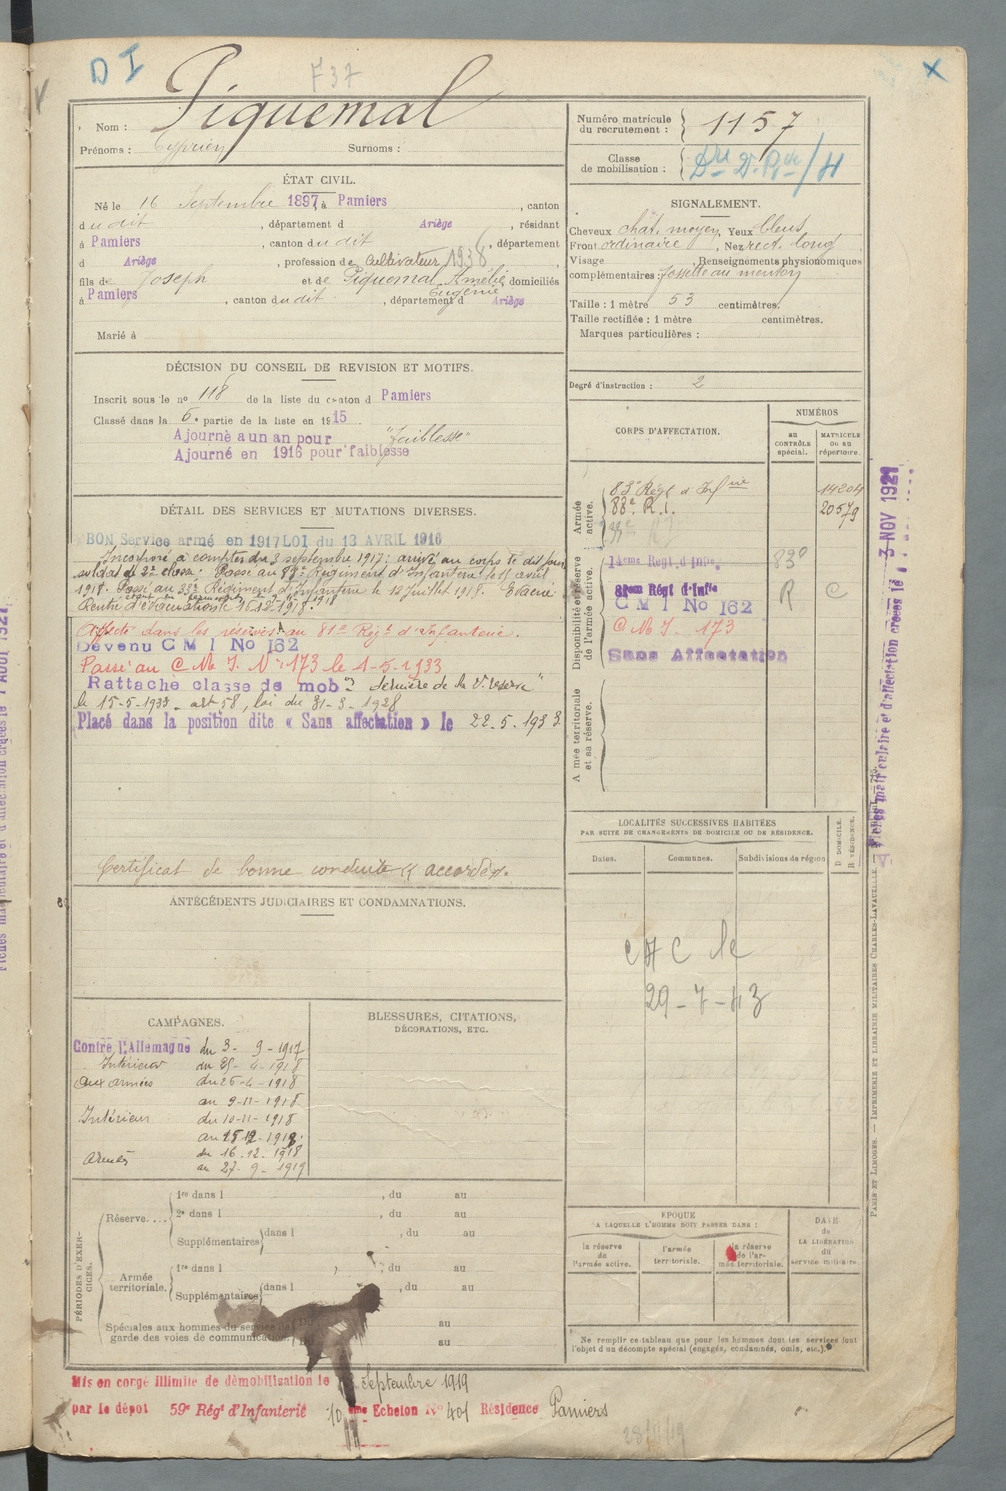 D I
F 37
X
Nom : Piquemal
Prénoms : Cyprien Surnoms :
Numéro matricule du recrutement : 1157
Classe de mobilisation :
ÉTAT CIVIL.
Né le 16 Septembre 1897, à Pamiers, canton
du dit, département d Ariège, résidant
à Pamiers, canton du dit, département
d Ariège, profession de Cultivateur 1938
fils de Joseph et de Piquemal Amélie Eugénie, domiciliés
à Pamiers, canton du dit, département d Ariège
Marié à
SIGNALEMENT.
Cheveux chât. moyen, Yeux bleus
Front ordinaire, Nez rect. long
Visage , Renseignements physionomiques
complémentaires : fossette au menton
Taille : 1 mètre 53 centimètres.
Taille rectifiée : 1 mètre centimètres.
Marques particulières :
Degré d'instruction : 2
DÉCISION DU CONSEIL DE REVISION ET MOTIFS.
Inscrit sous le n° 118 de la liste du canton d Pamiers
Classé dans la 5e partie de la liste en 1915
Ajourné a un an pour "faiblesse"
Ajourné en 1916 pour faiblesse
DÉTAIL DES SERVICES ET MUTATIONS DIVERSES.
BON Service armé en 1917 LOI du 13 AVRIL 1916
Incorporé à compter du 3 septembre 1917; arrivé au corps le dit jour
soldat de 2e classe. Passé au 88e Régiment d'Infanterie le 11 avril
1918. Passé au 35e Régiment d'Infanterie le 12 juillet 1918. Evacué
Affecté dans les réserves au 81e Rég. d'Infanterie.
Devenu C M I No 162
Passé au C M I. N° 173 le 1-5-1933
Rattaché classe de mob. "dernière de la 2e réserve"
le 15-5-1933 - art 58, loi du 31-3-1928
Placé dans la position dite « Sans affectation » le 22.5.1933
Certificat de bonne conduite « accordé ».
CORPS D'AFFECTATION.
NUMÉROS
au CONTRÔLE spécial.
MATRICULE ou au répertoire.
Armée active.
83e Régt d'Infrie 14204
88e R.I. 20579
Disponibilité et réserve de l'armée active.
14eme Regt d'Infie 83°
81em Régt d'Infie R C
C M I No 162
C M I. 173
Sans Affectation
Armée territoriale et sa réserve.
LOCALITÉS SUCCESSIVES HABITÉES
PAR SUITE DE CHANGEMENTS DE DOMICILE OU DE RÉSIDENCE.
Dates. Communes. Subdivisions de région
D. DOMICILE.
R. RÉSIDENCE.
29-7-43
ANTÉCÉDENTS JUDICIAIRES ET CONDAMNATIONS.
CAMPAGNES.
Contre l'Allemagne du 3-9-1917
Intérieur du 25-4-1918
aux armées du 26-4-1918
au 9-11-1918
Intérieur du 10-11-1918
au 15 12-1918.
armées du 16-12-1918
au 27-9-1919
BLESSURES, CITATIONS,
DÉCORATIONS, ETC.
PÉRIODES D'EXERCICES.
Réserve....
1re dans l , du au
2e dans l , du au
Supplémentaires dans l , du au
Armée territoriale.
1re dans l , du au
Supplémentaires dans l , du au
Spéciales aux hommes du service de
garde des voies de communication.
Du au
Du au
ÉPOQUE
A LAQUELLE L'HOMME DOIT PASSER DANS :
la réserve de l'armée active.
l'armée territoriale.
la réserve de l'armée territoriale.
DATE de LA LIBÉRATION du service militaire.
Ne remplir ce tableau que pour les hommes dont les services font
l'objet d'un décompte spécial (engagés, condamnés, omis, etc.).
Mis en congé illimité de démobilisation le Septembre 1919
par le dépôt 59e Rég' d'Infanterie 10 eme Echelon N° 401 Résidence Pamiers
PARIS ET LIMOGES. — IMPRIMERIE ET LIBRAIRIE MILITAIRES CHARLES-LAVAUZELLE.
Fiches matriculaire et d'affectation créées le 3 NOV 1921